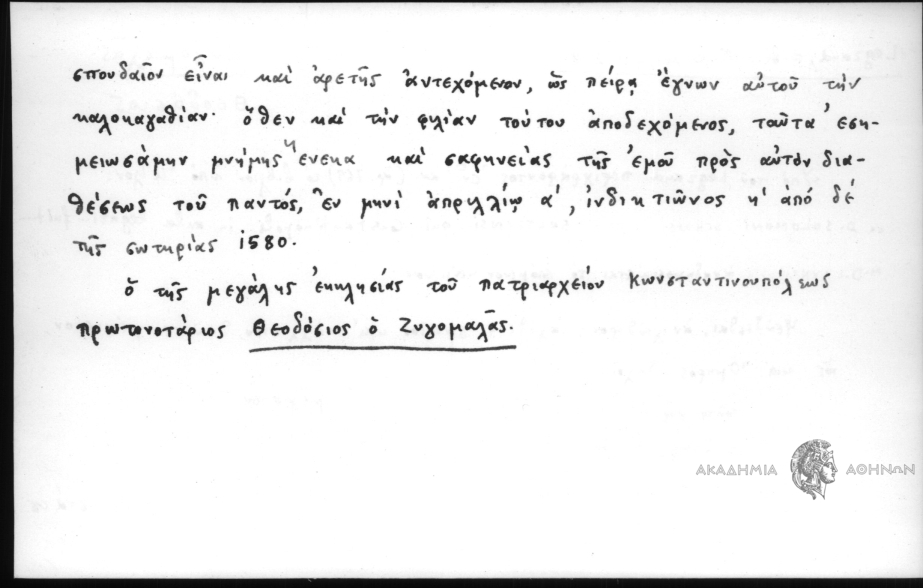 σπουδαῖον εἶναι καὶ ἀρετῆς ἀντεχόμενον, ὡς πείρᾳ ἔγνων αὐτοῦ τὴν
καλοκαγαθίαν· ὅθεν καὶ τὴν φιλίαν τούτου ἀποδεχόμενος, ταῦτα ἐση-
μειωσάμην μνήμης ἕνεκα καὶ σαφηνείας τῆς ἐμοῦ πρὸς αὐτὸν δια-
θέσεως τοῦ παντός, ἐν μηνὶ ἀπριλλίῳ α΄, ἰνδικτιῶνος η΄ ἀπό δέ
τῆς σωτηρίας 1580.
ὁ τῆς μεγάλης ἐκκλησίας τοῦ πατριαρχείου Κωνσταντινουπόλεως
πρωτονοτάριος Θεοδόσιος ὁ Ζυγομαλᾶς.
ΑΚΑΔΗΜΙΑ ΑΘΗΝΩΝ